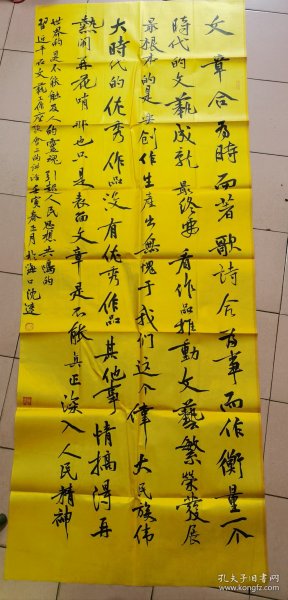 文章合为時而著歌詩合為事而作衡量一个
時代的文藝成就最终要看作品推動文藝繁榮發展
最根本的是要创作生產出無愧于我们这个偉大民族伟
大時代的优秀作品没有优秀作品其他事情搞得再
熱闹再花哨那也只是表面文章是不能真正深入人民精神
世界的是不能触及人的靈魂引起人民思想共鳴的
習近平在文藝工作座谈会上的讲话壬寅春正月於海口沈达
孔夫子旧书网